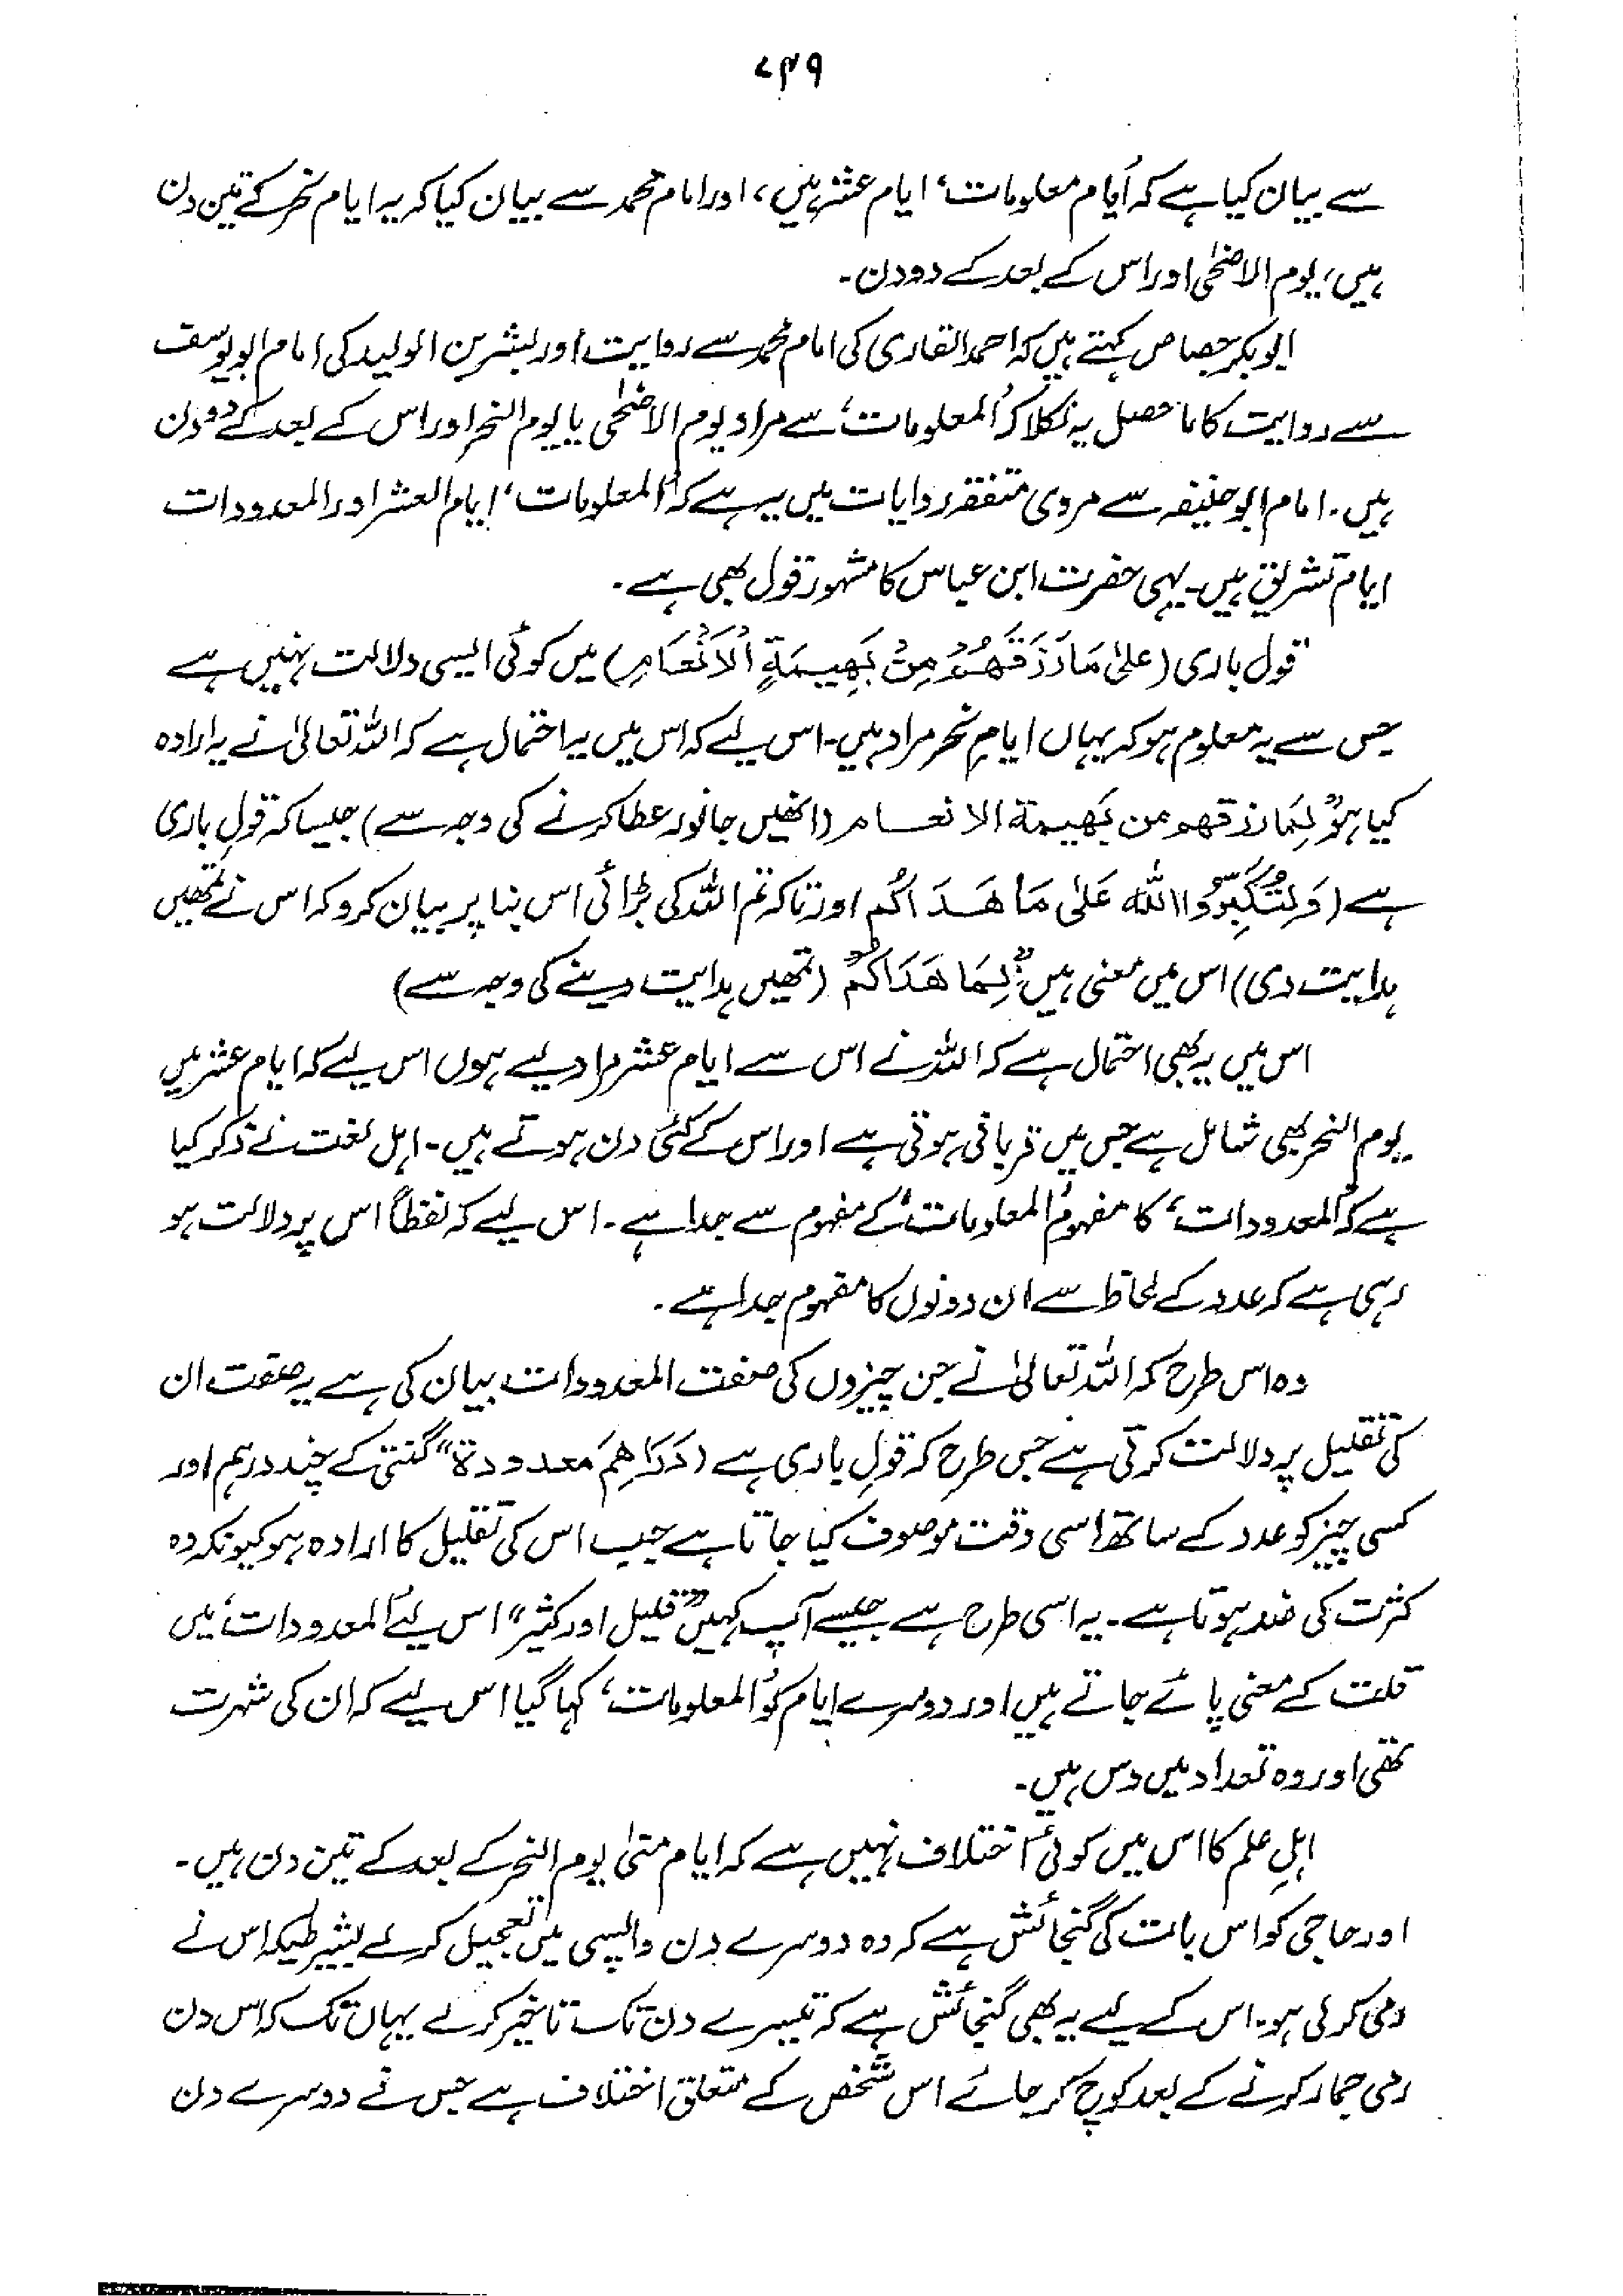 ۷۴۹
سے بیان کیا ہے کہ ُایام معلومات، ایام عشر ہیں، اور امام محمد سے بیان کیا کہ یہ ایام نحر کے تین دن
ہیں، یوم الاضحٰی اور اس کے بعد کے دو دن۔
ابوبکر جصاص کہتے ہیں کہ احمد القاری کی امام محمد سے روایت اور بشر بن الولید کی امام ابو یوسف
سے روایت کا ماحصل یہ نکلا کہ ُالمعلومات، سے مراد یوم الاضحٰی یا یوم النحر اور اس کے بعد کے دو دن
ہیں۔ امام ابو حنیفہ سے مروی متفقہ روایات میں یہ ہے کہ ُالمعلومات، ایام العشر اور المعدودات
ایام تشریق ہیں۔ یہی حضرت ابن عباس کا مشہور قول بھی ہے۔
قول باری (علیٰ مَا رَزَقَھُمْ مِنْ بَھِیمَۃِ الْاَنْعَامِ) میں کوئی ایسی دلالت نہیں ہے
جس سے یہ معلوم ہو کہ یہاں ایامِ نحر مراد ہیں۔ اس لیے کہ اس میں یہ احتمال ہے کہ اللہ تعالیٰ نے یہ ارادہ
کیا ہو "لِمَا رزقھم من بَھیمۃ الانعام (انھیں جانور عطا کرنے کی وجہ سے) جیسا کہ قولِ باری
ہے (وَلِتُکَبِّرُوا اللہَ عَلیٰ مَا ھَدَاکُم اور تاکہ تم اللہ کی بڑائی اس بنا پر بیان کرو کہ اس نے تمھیں
ہدایت دی) اس میں معنی ہیں "لِمَا ھَدَاکُمْ" (تمھیں ہدایت دینے کی وجہ سے)
اس میں یہ بھی احتمال ہے کہ اللہ نے اس سے ایام عشر مراد لیے ہوں اس لیے کہ ایام عشر میں
یوم النحر بھی شامل ہے جس میں قربانی ہوتی ہے اور اس کے کئی دن ہوتے ہیں۔ اہل لغت نے ذکر کیا
ہے کہ ُالمعدودات، کا مفہوم ُالمعلومات، کے مفہوم سے جدا ہے۔ اس لیے کہ لفظاً اس پر دلالت ہو
رہی ہے کہ عدد کے لحاظ سے ان دونوں کا مفہوم جدا ہے۔
وہ اس طرح کہ اللہ تعالیٰ نے جن چیزوں کی صفت المعدودات بیان کی ہے یہ صفت ان
کی تقلیل پر دلالت کرتی ہے جس طرح کہ قولِ باری ہے (دَرَاھِمَ معدودۃ" گنتی کے چند درہم اور
کسی چیز کو عدد کے ساتھ اسی وقت موصوف کیا جاتا ہے جب اس کی تقلیل کا ارادہ ہو کیونکہ وہ
کثرت کی ضد ہوتا ہے۔ یہ اسی طرح ہے جیسے آپ کہیں "قلیل اور کثیر" اس لیے ُالمعدودات، میں
قلت کے معنی پائے جاتے ہیں اور دوسرے ایام کو ُالمعلومات، کہا گیا اس لیے کہ ان کی شہرت
تھی اور وہ تعداد میں دس ہیں۔
اہلِ علم کا اس میں کوئی اختلاف نہیں ہے کہ ایام منیٰ یوم النحر کے بعد کے تین دن ہیں۔
اور حاجی کو اس بات کی گنجائش ہے کہ وہ دوسرے دن واپسی میں تعجیل کرلے بشیرطیکہ اس نے
رمی کرلی ہو۔ اس کے لیے یہ بھی گنجائش ہے کہ تیسرے دن تک تاخیر کرلے یہاں تک کہ اس دن
رمی جمار کرنے کے بعد کوچ کر جائے اس شخص کے متعلق اختلاف ہے جس نے دوسرے دن